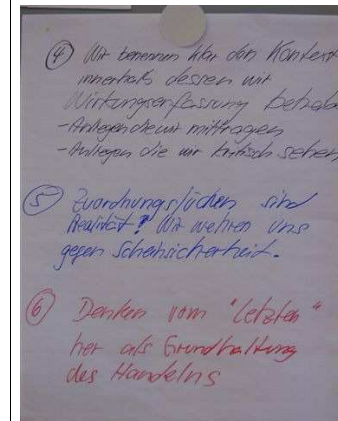 ④ Wir benennen klar den Kontext
innerhalb dessen wir
Wirkungserfassung betreib
- Anliegen die wir mittragen
- Anliegen die wir kritisch sehen
⑤ Zuordnungslücken sind
Realität! Wir wehren uns
gegen Scheinsicherheit.
⑥ Denken vom "letzten"
her als Grundhaltung
des Handelns